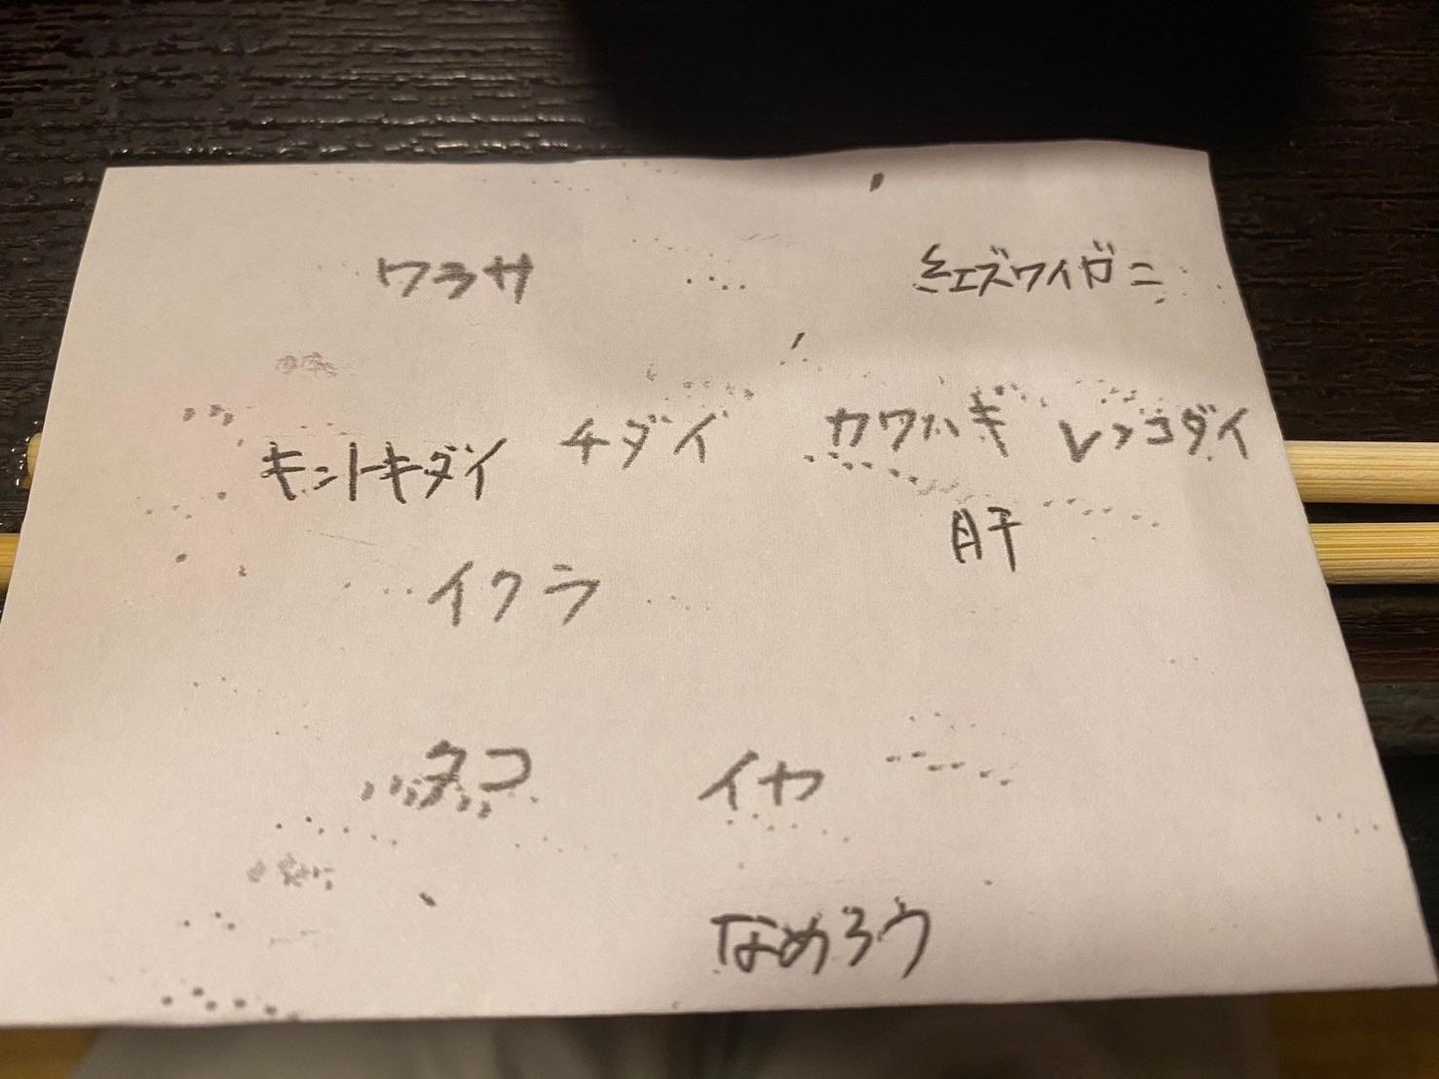 ワラサ 紅ズワイガニ
キントキダイ チダイ カワハギ レンコダイ
肝
イクラ
タコ イヤ
なめろう